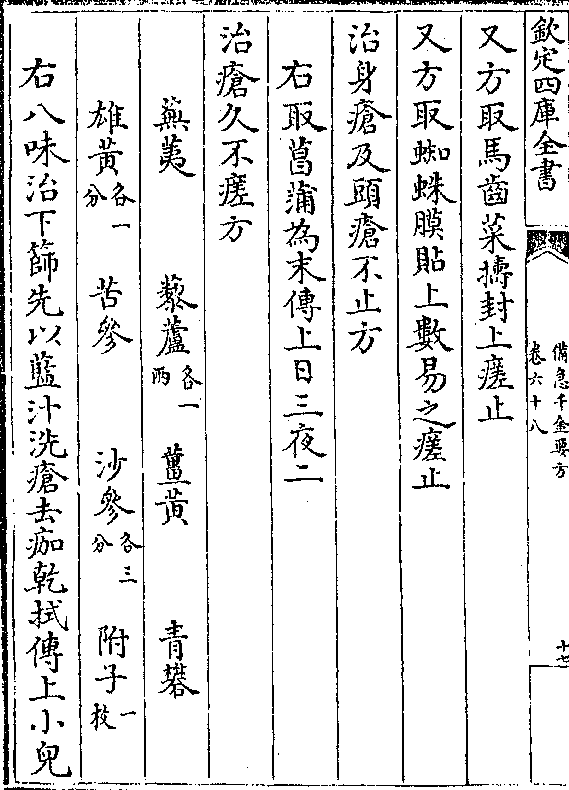 欽定四庫全書
備急千金要方
卷六十八
十七
又方取馬齒菜擣封上瘥止
又方取蜘蛛膜貼上數易之瘥止
治身瘡及頭瘡不止方
右取菖蒲為末傅上日三夜二
治瘡久不瘥方
蕪荑 藜蘆各一兩 薑黄 青礬
雄黄各一分 苦參 沙參各三分 附子一枚
右八味治下篩先以藍汁洗瘡去痂乾拭傅上小兒